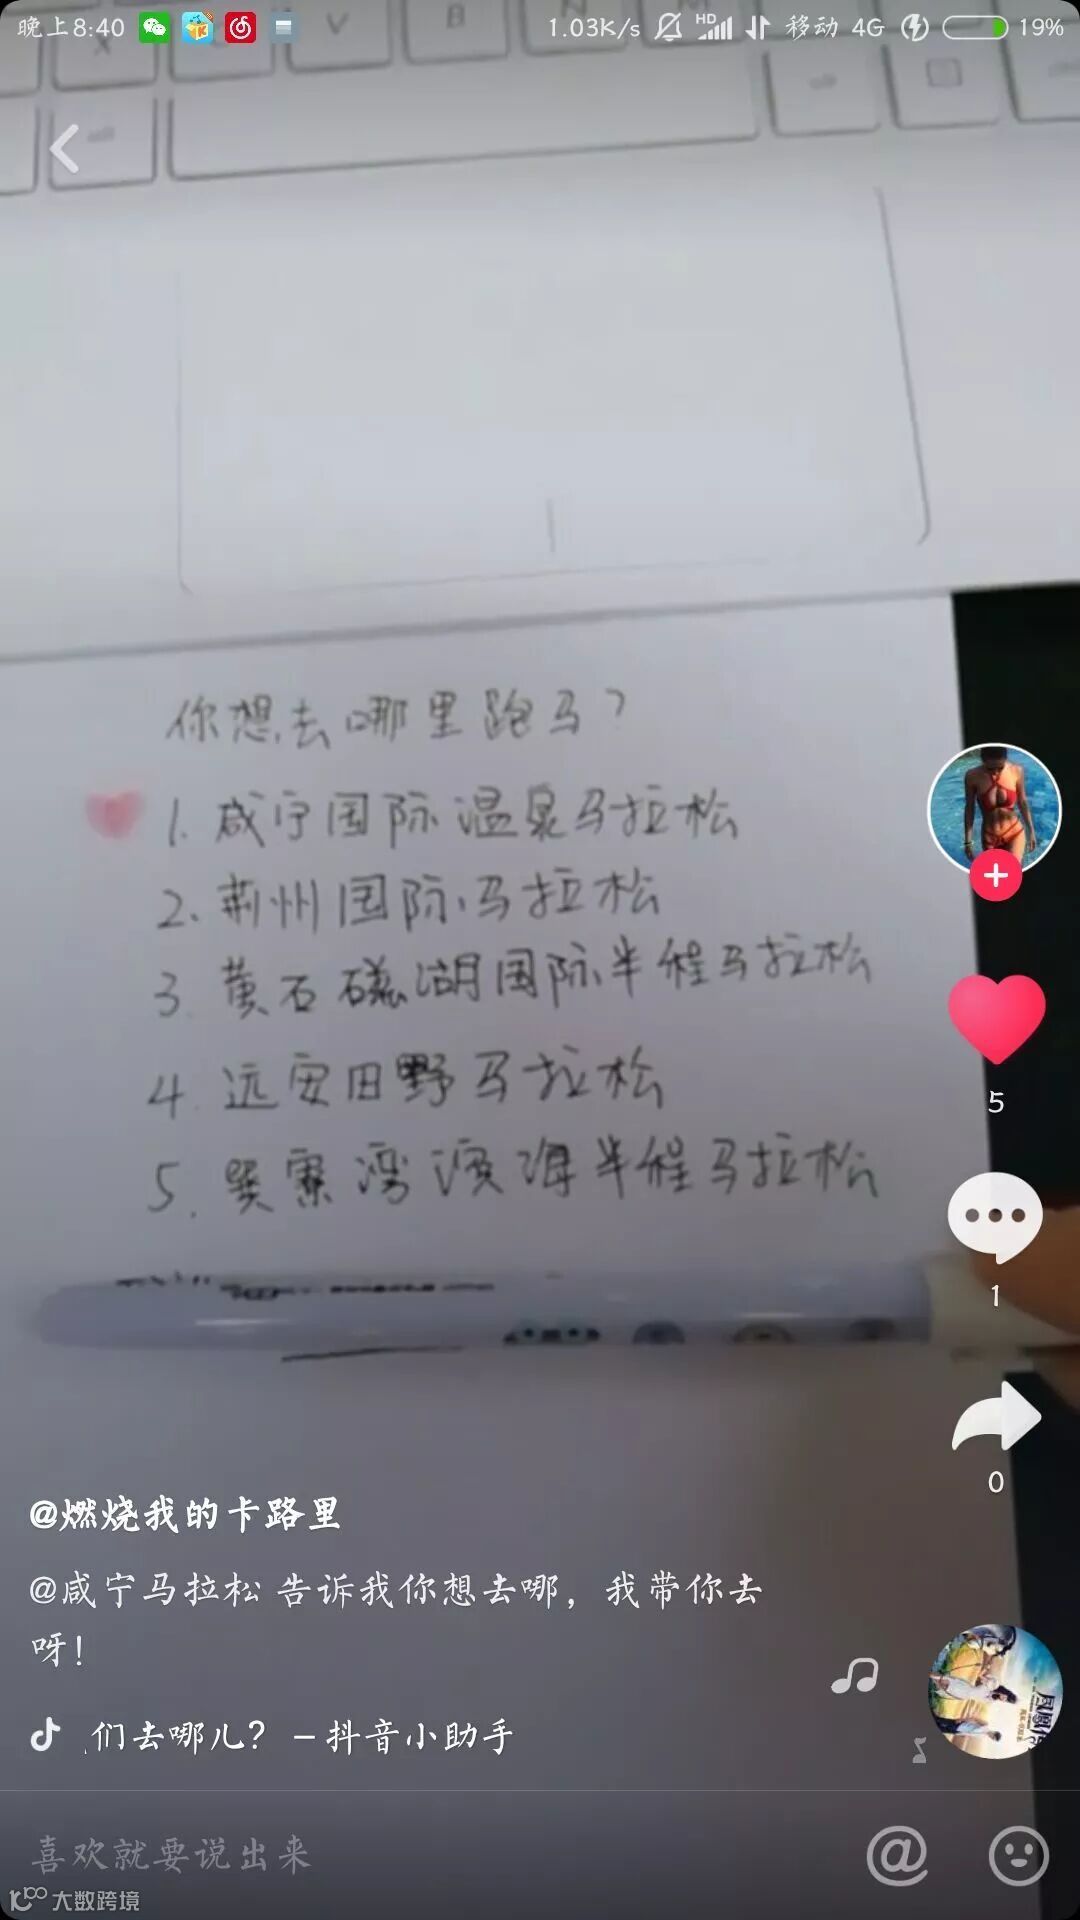 晚上8:40
1.03K/s HD 移动 4G 19%
V B N
你想去哪里跑马?
1. 咸宁国际温泉马拉松
2. 荆州国际马拉松
3. 黄石磁湖国际半程马拉松
4. 远安田野马拉松
5. 巽寮湾滨海半程马拉松
5
1
0
@燃烧我的卡路里
@咸宁马拉松 告诉我你想去哪,我带你去
呀!
们去哪儿? – 抖音小助手
喜欢就要说出来
大数跨境